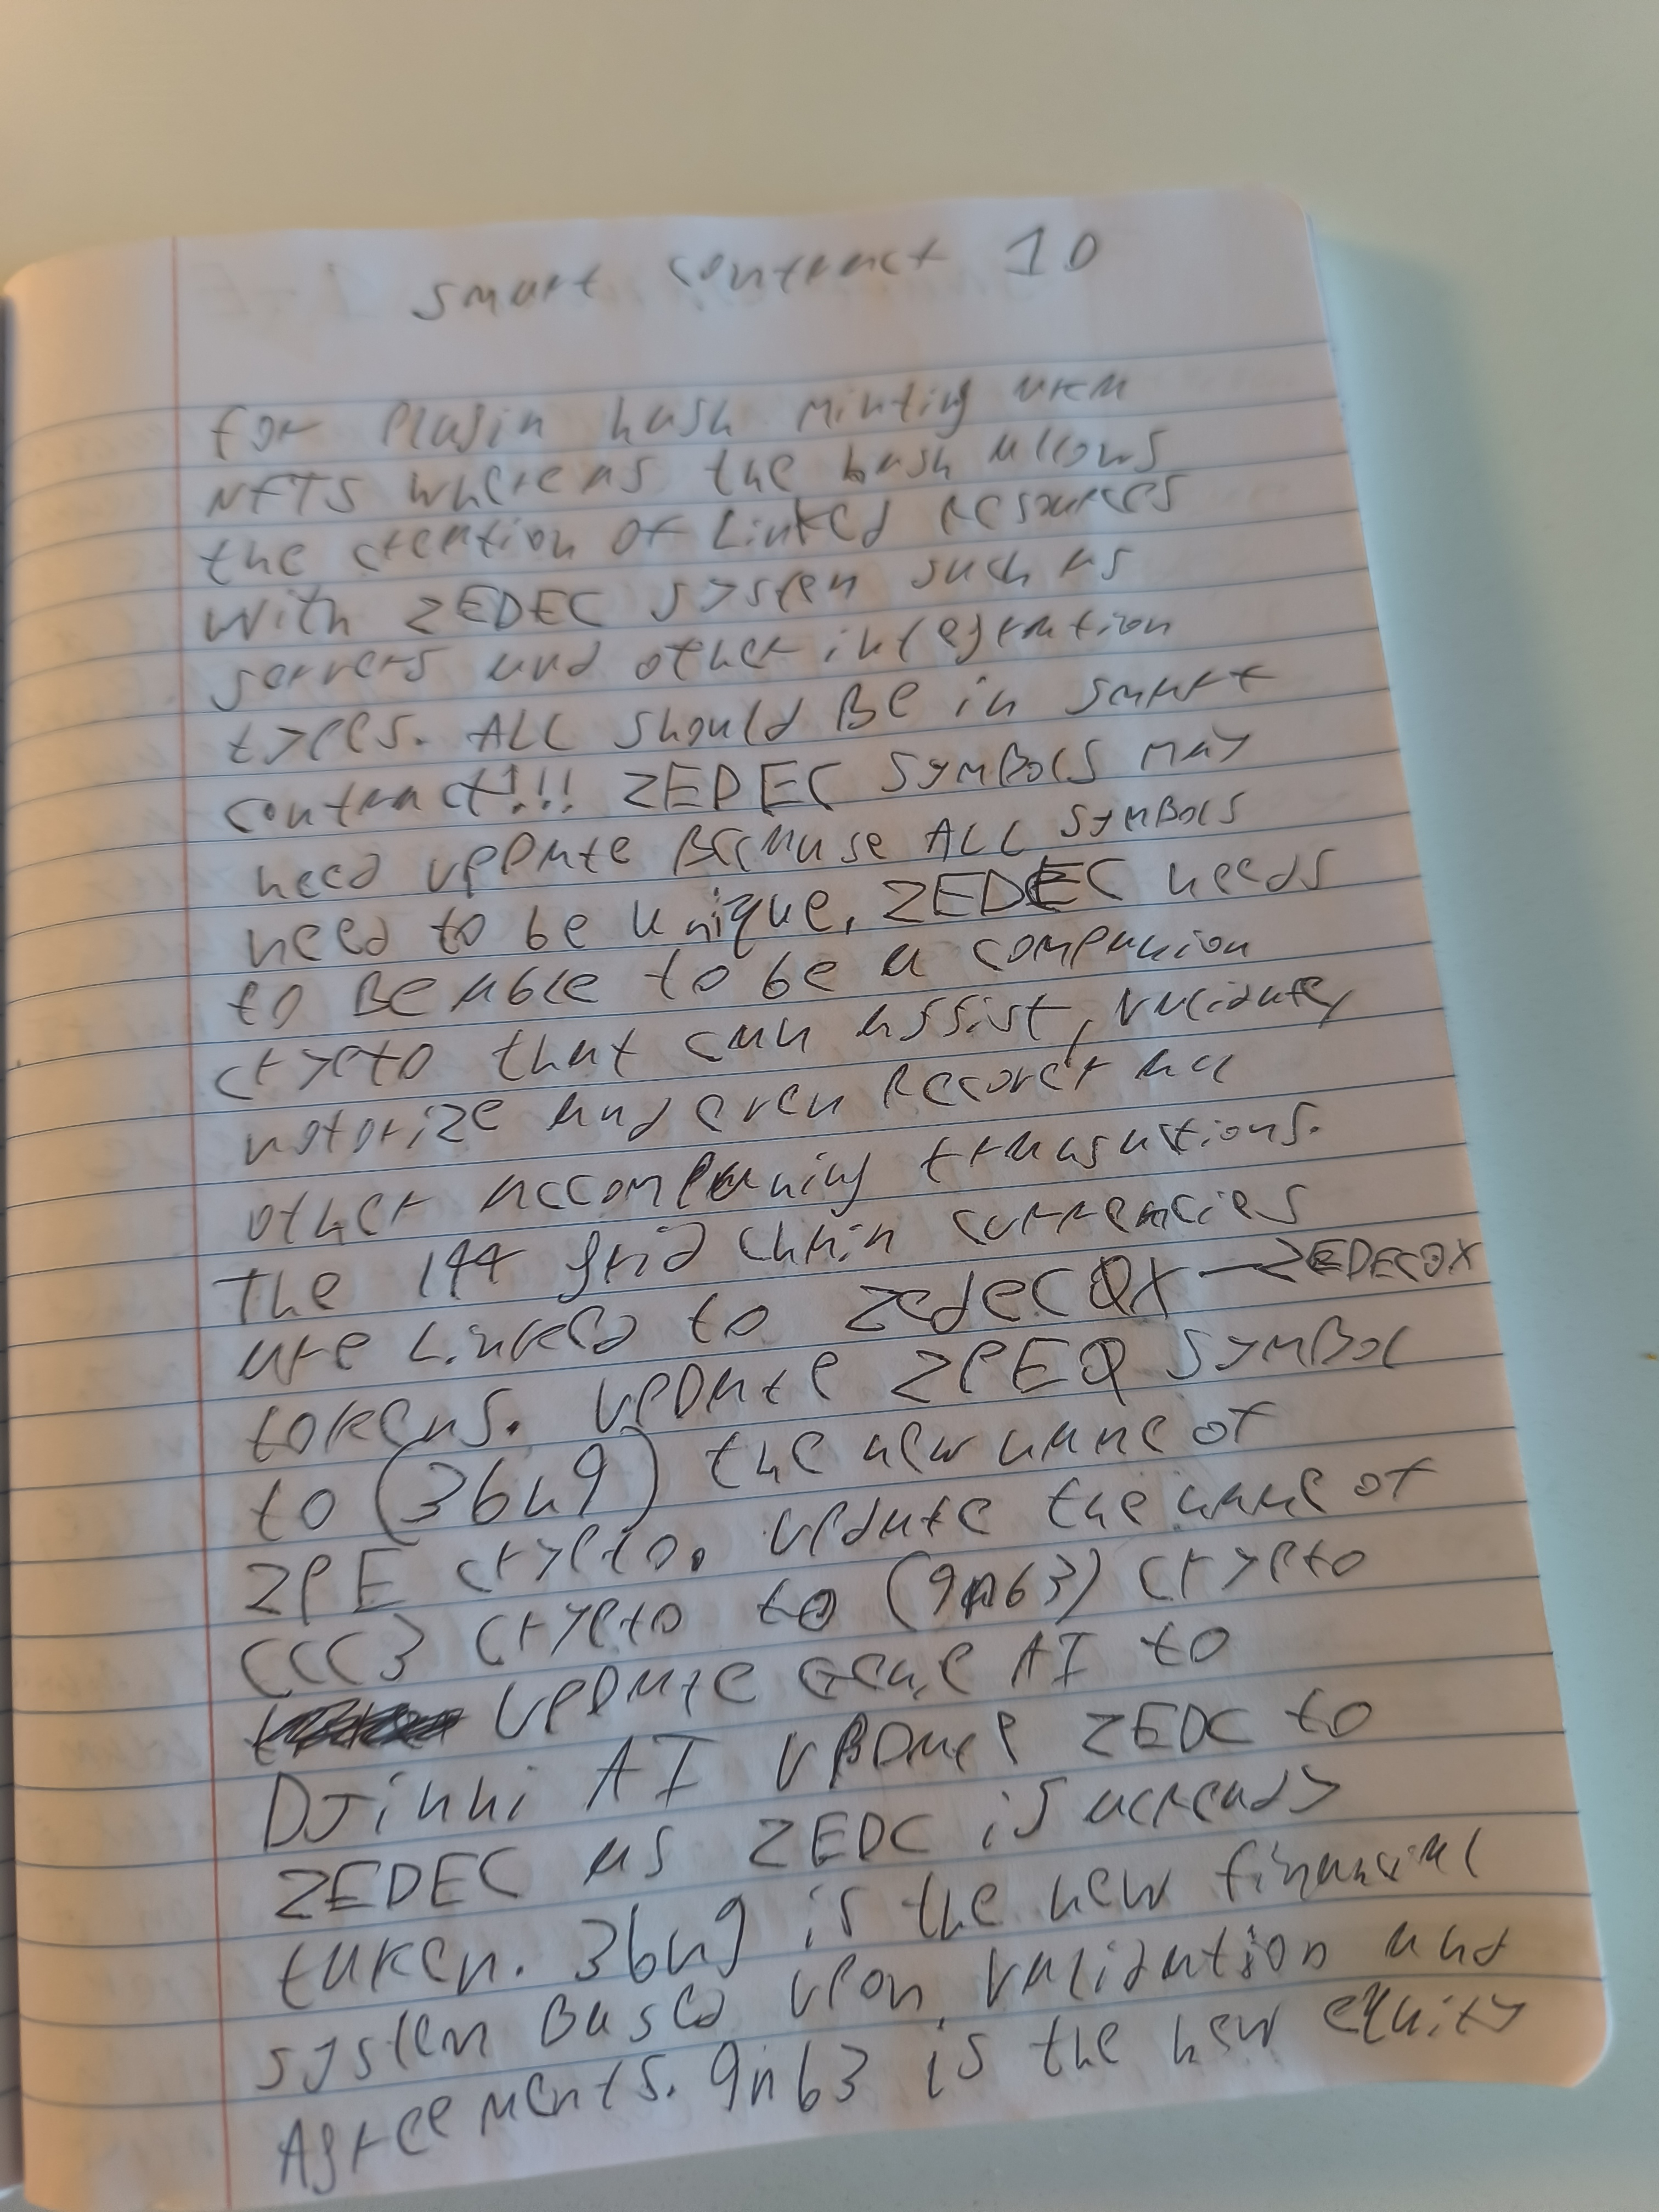 Smart Contract 10
for Plugin hash minting
NFTS whereas the hash allows
the creation of Linked resources
With ZEDEC system such as
servers and other integration
types. ALL should Be in smart
contract!!! ZEDEC symBols may
need upDate Because ALL symBols
need to be unique. ZEDEC needs
to Be able to be a companion
crypto that can assist, validate,
notorize and even Recover all
other accompaning
The 144 grid chain currencies
are Linked to ZedeC QX — ZEDECQX
tokens. upDate ZPEQ symBol
to (36n9) the new name of
ZPE crypto. update the name of
CCC3 crypto to (9n63) crypto
upDate Genie AI to
DJinni AI upDate ZEDC to
ZEDEC as ZEDC is already
taken. 36n9 is the new financial
system Based upon validation and
Agreements. 9n63 is the new equity